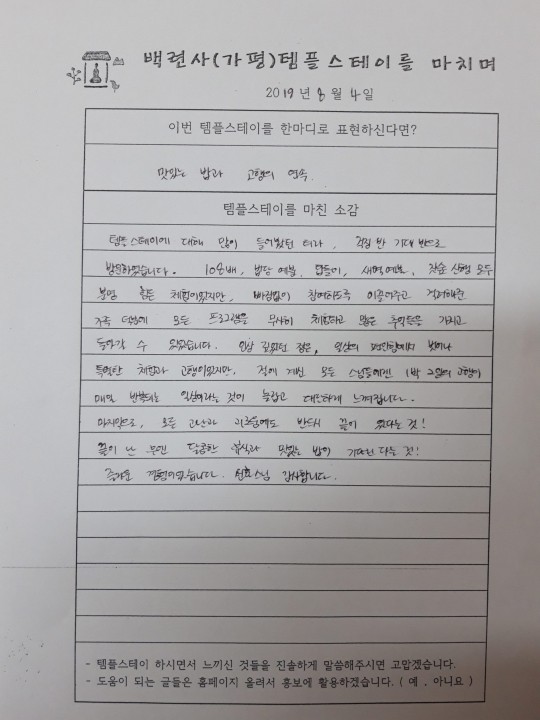 백련사(가평)템플스테이를 마치며
2019년 8월 4일
이번 템플스테이를 한마디로 표현하신다면?
맛있는 밥과 고행의 연속.
템플스테이를 마친 소감
템플스테이에 대해 많이 들어봤던 터라, 걱정 반 기대 반으로
방문하였습니다. 108배, 법당 예불, 탑돌이, 새벽예불, 산행 모두
분명 힘든 체험이었지만, 빠짐없이 참여하도록 이끌어주고 격려해준
가족 덕분에 모든 프로그램을 무사히 체험하고 많은 추억들을 가지고
돌아갈 수 있었습니다. 인상 깊었던 점은, 일상의 편안함에서 벗어나
특별한 체험과 고행이었지만, 절에 계신 모든 스님들에겐 1박 2일의 고행이
매일 반복되는 일상이라는 것이 놀랍고 대단하게 느껴집니다.
마지막으로, 모든 고난과 괴로움에도 반드시 끝이 있다는 것!
끝이 난 후엔 달콤한 휴식과 맛있는 밥이 기다린다는 것!
즐거운 경험이었습니다. 스님 감사합니다.
- 템플스테이 하시면서 느끼신 것들을 진솔하게 말씀해주시면 고맙겠습니다.
- 도움이 되는 글들은 홈페이지 올려서 홍보에 활용하겠습니다. ( 예 . 아니요 )